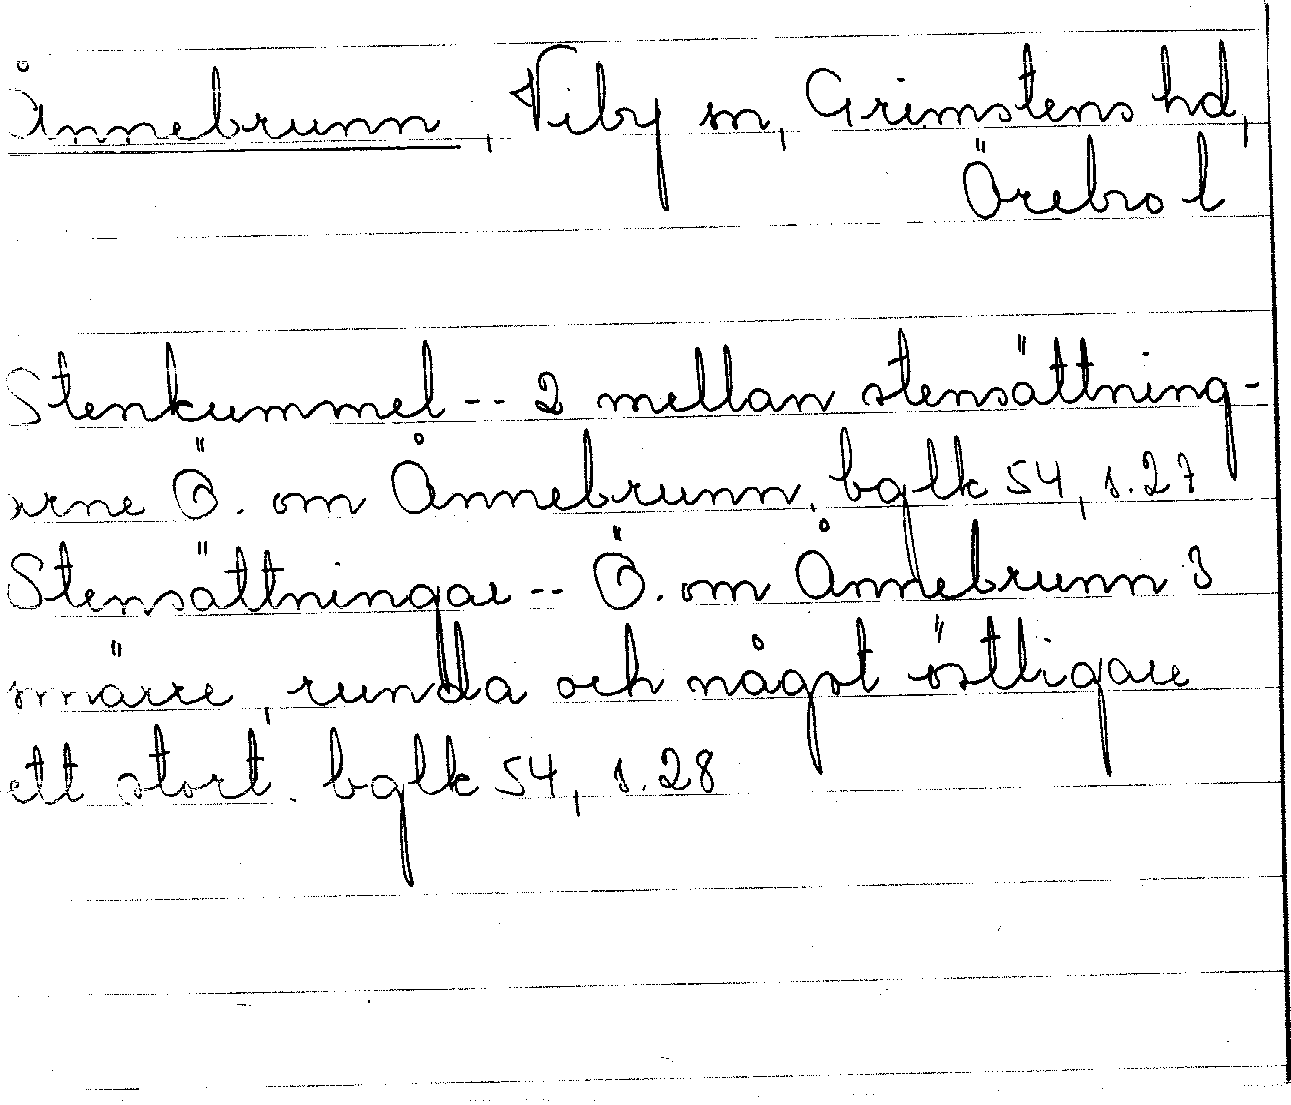 Ånnebrunn, Viby sn, Grimstens hd,
Örebro l
Stenkummel -- 2 mellan stensättning-
arne Ö. om Ånnebrunn. bglk 54, s.27
Stensättningar -- Ö. om Ånnebrunn 3
smärre, runda och något östligare
ett stort. bglk 54, s.28